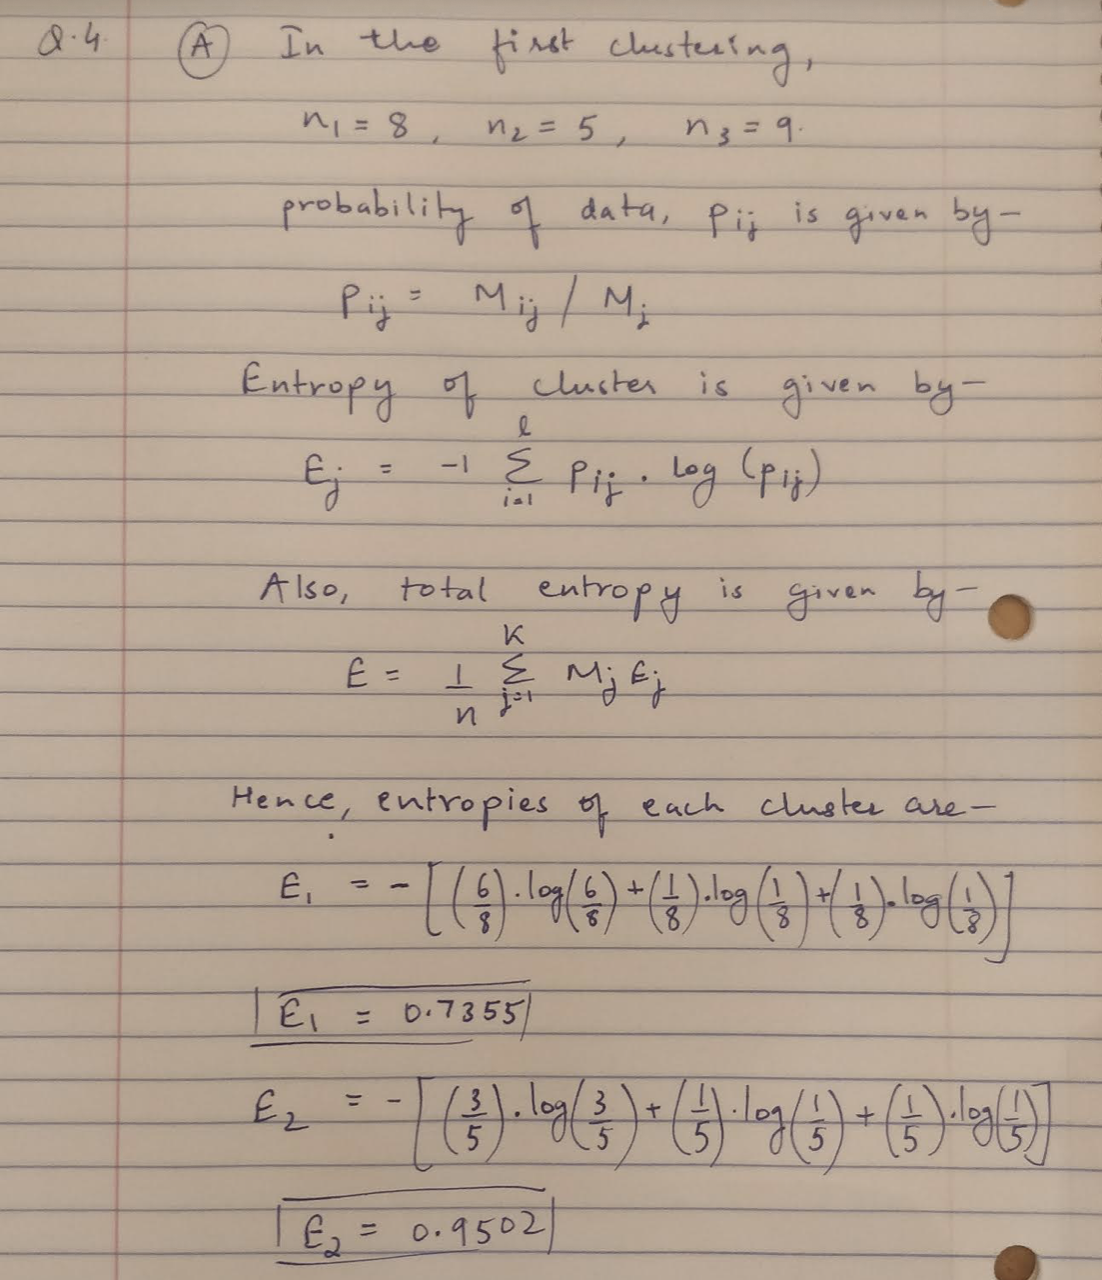 Q.4. (A) In the first clustering,
n₁ = 8, n₂ = 5, n₃ = 9.
probability of data, Pij is given by -
Pij = Mij / Mj
Entropy of cluster is given by -
Ej = -1 Σ_{i=1}^{l} Pij . log (Pij)
Also, total entropy is given by -
E = 1/n Σ_{j=1}^{K} Mj Ej
Hence, entropies of each cluster are -
E₁ = - [(6/8).log(6/8) + (1/8).log(1/8) + (1/8).log(1/8)]
E₁ = 0.7355
E₂ = - [(3/5).log(3/5) + (1/5).log(1/5) + (1/5).log(1/5)]
E₂ = 0.9502